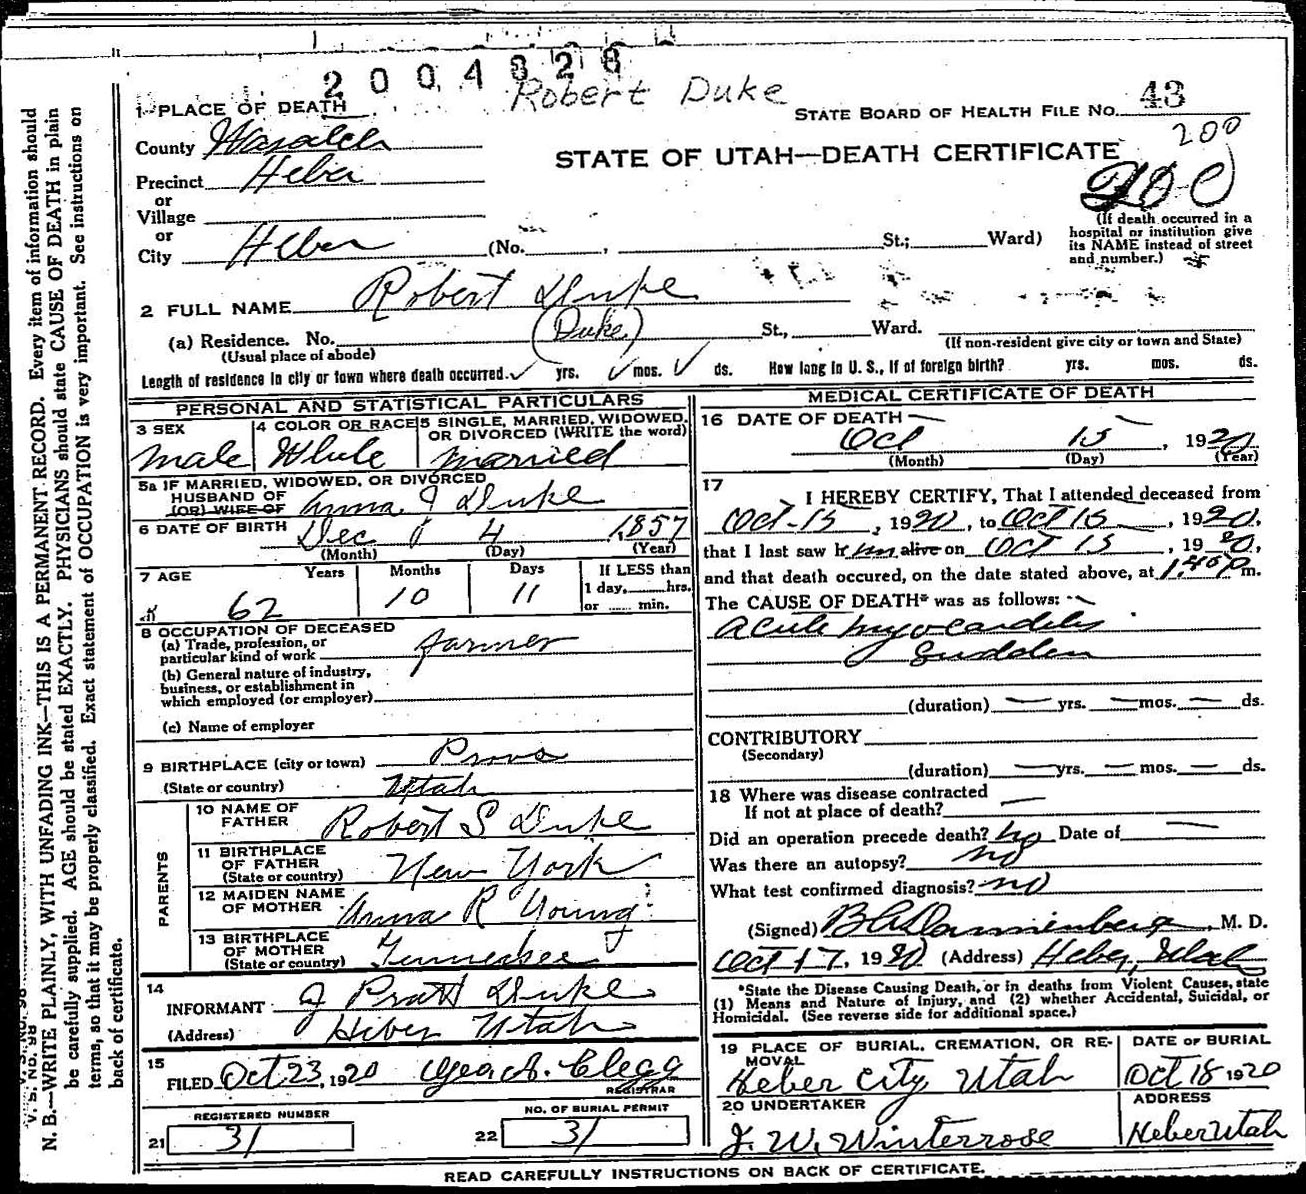 2004328
Robert Duke
1 PLACE OF DEATH
STATE BOARD OF HEALTH FILE No. 43
County Wasatch
200
STATE OF UTAH—DEATH CERTIFICATE
Precinct Heber
or
Village
or
City Heber (No. , St.; Ward)
(If death occurred in a
hospital or institution give
its NAME instead of street
and number.)
2 FULL NAME Robert Duke
(Duke)
(a) Residence. No. St., Ward.
(Usual place of abode)
(If non-resident give city or town and State)
Length of residence in city or town where death occurred. ✓ yrs. ✓ mos. ✓ ds. How long in U. S., if of foreign birth? yrs. mos. ds.
PERSONAL AND STATISTICAL PARTICULARS
3 SEX
Male
4 COLOR OR RACE
White
5 SINGLE, MARRIED, WIDOWED,
OR DIVORCED (WRITE the word)
Married
5a IF MARRIED, WIDOWED, OR DIVORCED
HUSBAND OF
(OR) WIFE OF Anna J Duke
6 DATE OF BIRTH Dec 4 1857
(Month) (Day) (Year)
7 AGE Years Months Days
62 10 11
If LESS than
1 day, hrs.
or min.
8 OCCUPATION OF DECEASED
(a) Trade, profession, or
particular kind of work Farmer
(b) General nature of industry,
business, or establishment in
which employed (or employer)
(c) Name of employer
9 BIRTHPLACE (city or town) Provo
(State or country) Utah
PARENTS
10 NAME OF
FATHER Robert S Duke
11 BIRTHPLACE
OF FATHER
(State or country) New York
12 MAIDEN NAME
OF MOTHER Anna R Young
13 BIRTHPLACE
OF MOTHER
(State or country) Tennessee
14
INFORMANT J Pratt Duke
(Address) Heber Utah
15
FILED Oct 23, 1920 Geo A. Clegg
REGISTRAR
REGISTERED NUMBER
21 31
NO. OF BURIAL PERMIT
22 31
MEDICAL CERTIFICATE OF DEATH
16 DATE OF DEATH
Oct 15, 1920
(Month) (Day) (Year)
17
I HEREBY CERTIFY, That I attended deceased from
Oct-15, 1920, to Oct 15, 1920,
that I last saw him alive on Oct 15, 1920,
and that death occured, on the date stated above, at m.
The CAUSE OF DEATH* was as follows:
Acute myocarditis
Sudden
(duration) — yrs. — mos. — ds.
CONTRIBUTORY
(Secondary)
(duration) — yrs. — mos. — ds.
18 Where was disease contracted
If not at place of death? —
Did an operation precede death? no Date of —
Was there an autopsy? no
What test confirmed diagnosis? no
(Signed) , M. D.
Oct 17, 1920 (Address) Heber, Utah
*State the Disease Causing Death, or in deaths from Violent Causes, state
(1) Means and Nature of Injury, and (2) whether Accidental, Suicidal, or
Homicidal. (See reverse side for additional space.)
19 PLACE OF BURIAL, CREMATION, OR RE-
MOVAL
Heber City Utah
DATE OF BURIAL
Oct 18 1920
20 UNDERTAKER
J. W. Winterrose
ADDRESS
Heber Utah
READ CAREFULLY INSTRUCTIONS ON BACK OF CERTIFICATE.
V. S. No. 98
N. B.—WRITE PLAINLY, WITH UNFADING INK—THIS IS A PERMANENT RECORD. Every item of information should
be carefully supplied. AGE should be stated EXACTLY. PHYSICIANS should state CAUSE OF DEATH in plain
terms, so that it may be properly classified. Exact statement of OCCUPATION is very important. See instructions on
back of certificate.